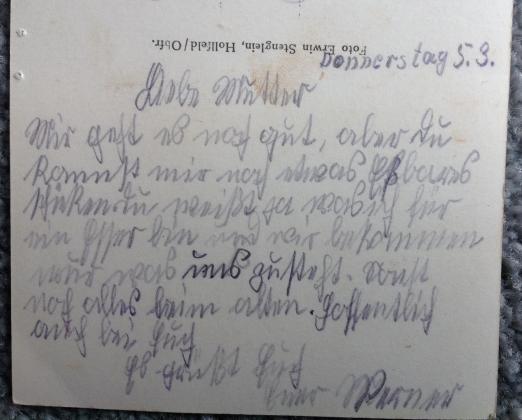 Foto Erwin Stenglein, Hollfeld/Obfr.
Donnerstag 5.9.
Liebe Mutter
Mir geht es noch gut, aber du
kannst mir noch etwas Eßbares
schiken du weißt ja was ich für
ein Esser bin und wir bekommen
nur was uns zusteht. Sonst
noch alles beim alten. Hoffentlich
auch bei Euch
Es grüßt Euch
Euer Werner